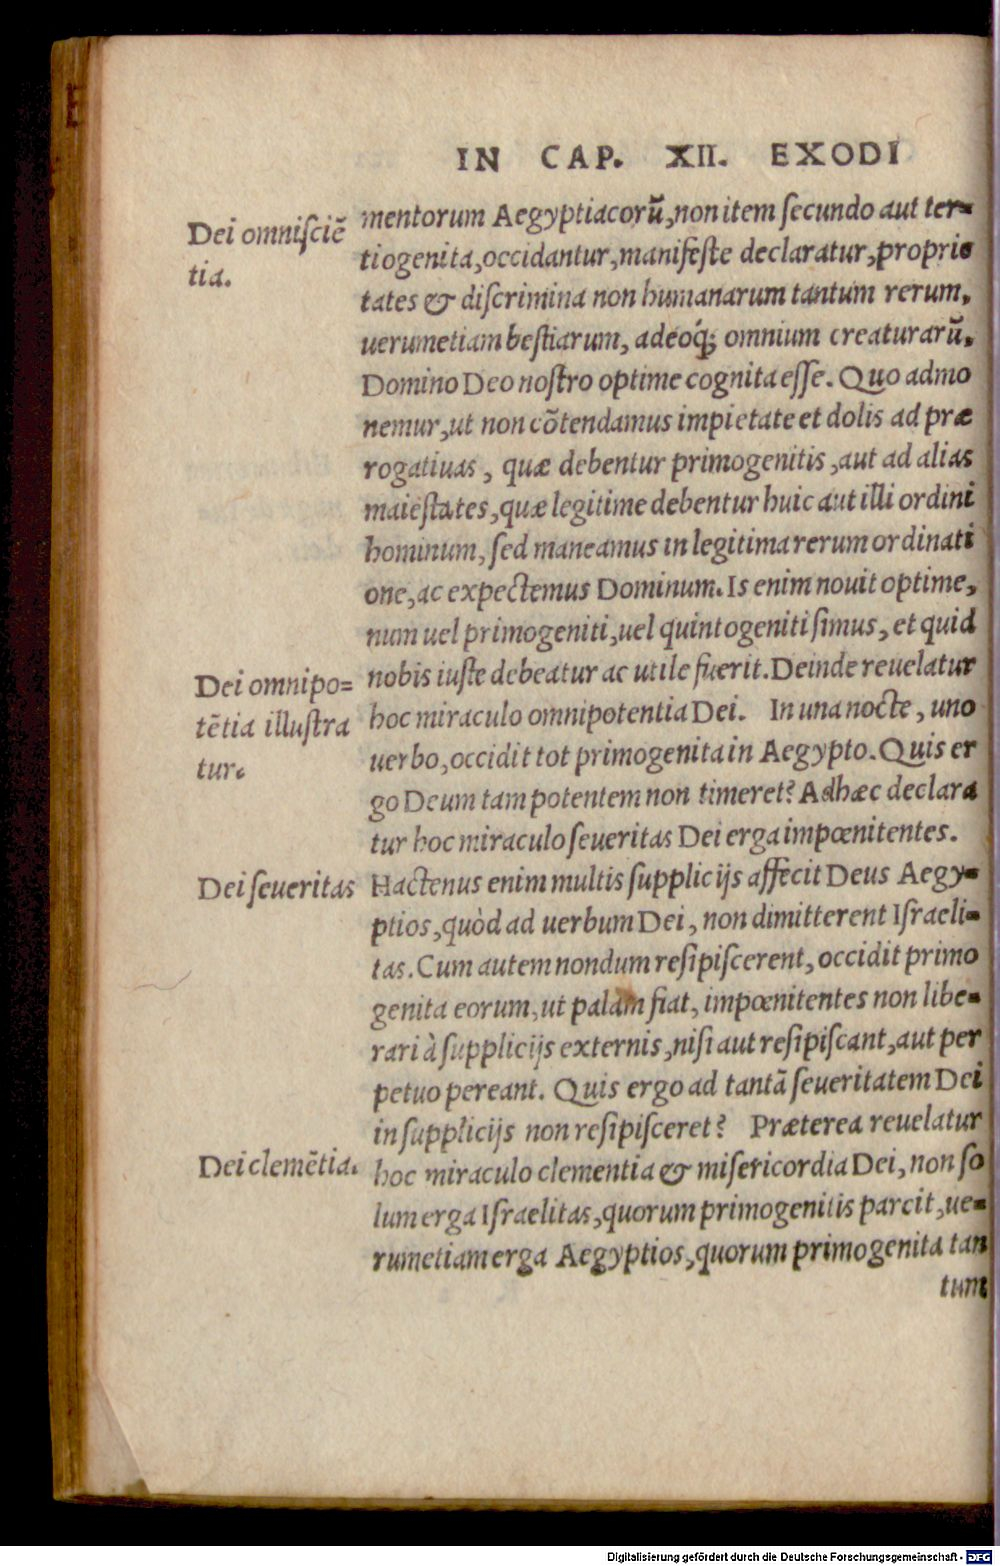 IN CAP. XII. EXODI
Dei omnisciẽ
tia.
mentorum Aegyptiacorũ, non item secundo aut ter-
tiogenita, occidantur, manifeste declaratur, proprie
tates & discrimina non humanarum tantum rerum,
uerumetiam bestiarum, adeoq́; omnium creaturarũ,
Domino Deo nostro optime cognita esse. Quo admo
nemur, ut non cõtendamus impietate et dolis ad præ
rogatiuas, quæ debentur primogenitis, aut ad alias
maiestates, quæ legitime debentur huic aut illi ordini
hominum, sed maneamus in legitima rerum ordinati
one, ac expectemus Dominum. Is enim nouit optime,
num uel primogeniti, uel quintogenitisimus, et quid
Dei omnipo=
tẽtia illustra
tur.
nobis iuste debeatur ac utile fuerit. Deinde reuelatur
hoc miraculo omnipotentia Dei. In una nocte, uno
uerbo, occidit tot primogenita in Aegypto. Quis er
go Deum tam potentem non timeret? Adhæc declara
tur hoc miraculo seueritas Dei erga impœnitentes.
Dei seueritas
Hactenus enim multis supplicijs affecit Deus Aegy-
ptios, quòd ad uerbum Dei, non dimitterent Israeli-
tas. Cum autem nondum resipiscerent, occidit primo
genita eorum, ut palàm fiat, impœnitentes non libe-
rari à supplicijs externis, nisi aut resipiscant, aut per
petuo pereant. Quis ergo ad tantã seueritatem Dei
in supplicijs non resipisceret? Præterea reuelatur
Dei clemẽtia.
hoc miraculo clementia & misericordia Dei, non so
lum erga Israelitas, quorum primogenitis parcit, ue-
rumetiam erga Aegyptios, quorum primogenita tan
tum
Digitalisierung gefördert durch die Deutsche Forschungsgemeinschaft - DFG